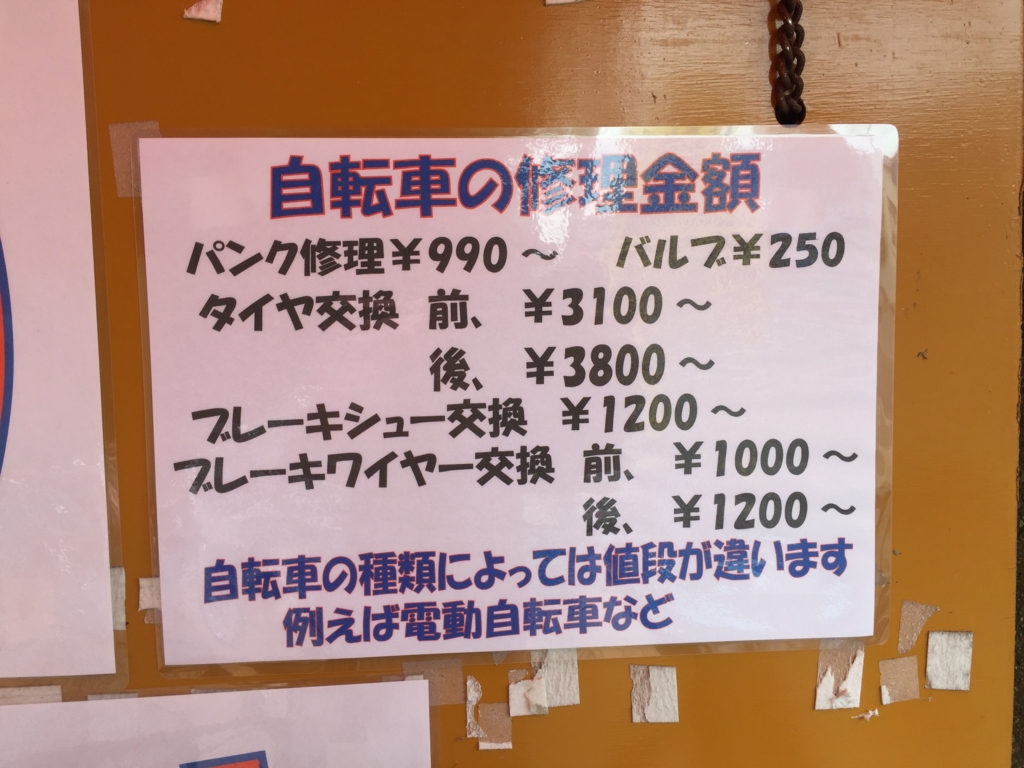 自転車の修理金額
パンク修理¥990～　バルブ¥250
タイヤ交換　前、　¥3100～
後、　¥3800～
ブレーキシュー交換　¥1200～
ブレーキワイヤー交換　前、　¥1000～
後、　¥1200～
自転車の種類によっては値段が違います
例えば電動自転車など